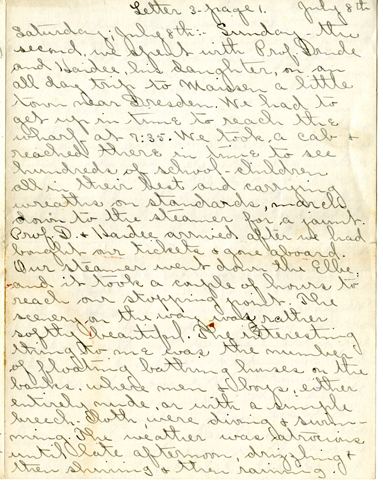 Letter 3-page 1. July 8th
Saturday, July 8th:- Sunday - the
second, we spent with Prof. Drude
and Haidee, his daughter, on an
all day trip to Maissen a little
town near Dresden. We had to
get up in time to reach the
wharf at 7:35. We took a cab &
reached there in time to see
hundreds of school-children
all in their best and carrying
wreaths on standards, march
down to the steamer for a jaunt.
Prof. D. & Haidee arrived after we had
bought our tickets & gone aboard.
Our steamer went down the Elbe
and it took a couple of hours to
reach our stopping point. The
scenery on the way was rather
softly beautiful. The interesting
thing to me was the number
of floating bathing houses on the
banks, where men & boys, either
entirely nude, or with a simple
breech-cloth, were diving & swim-
ming. The weather was atrocious
until late afternoon, drizzling &
then shining & then raining.